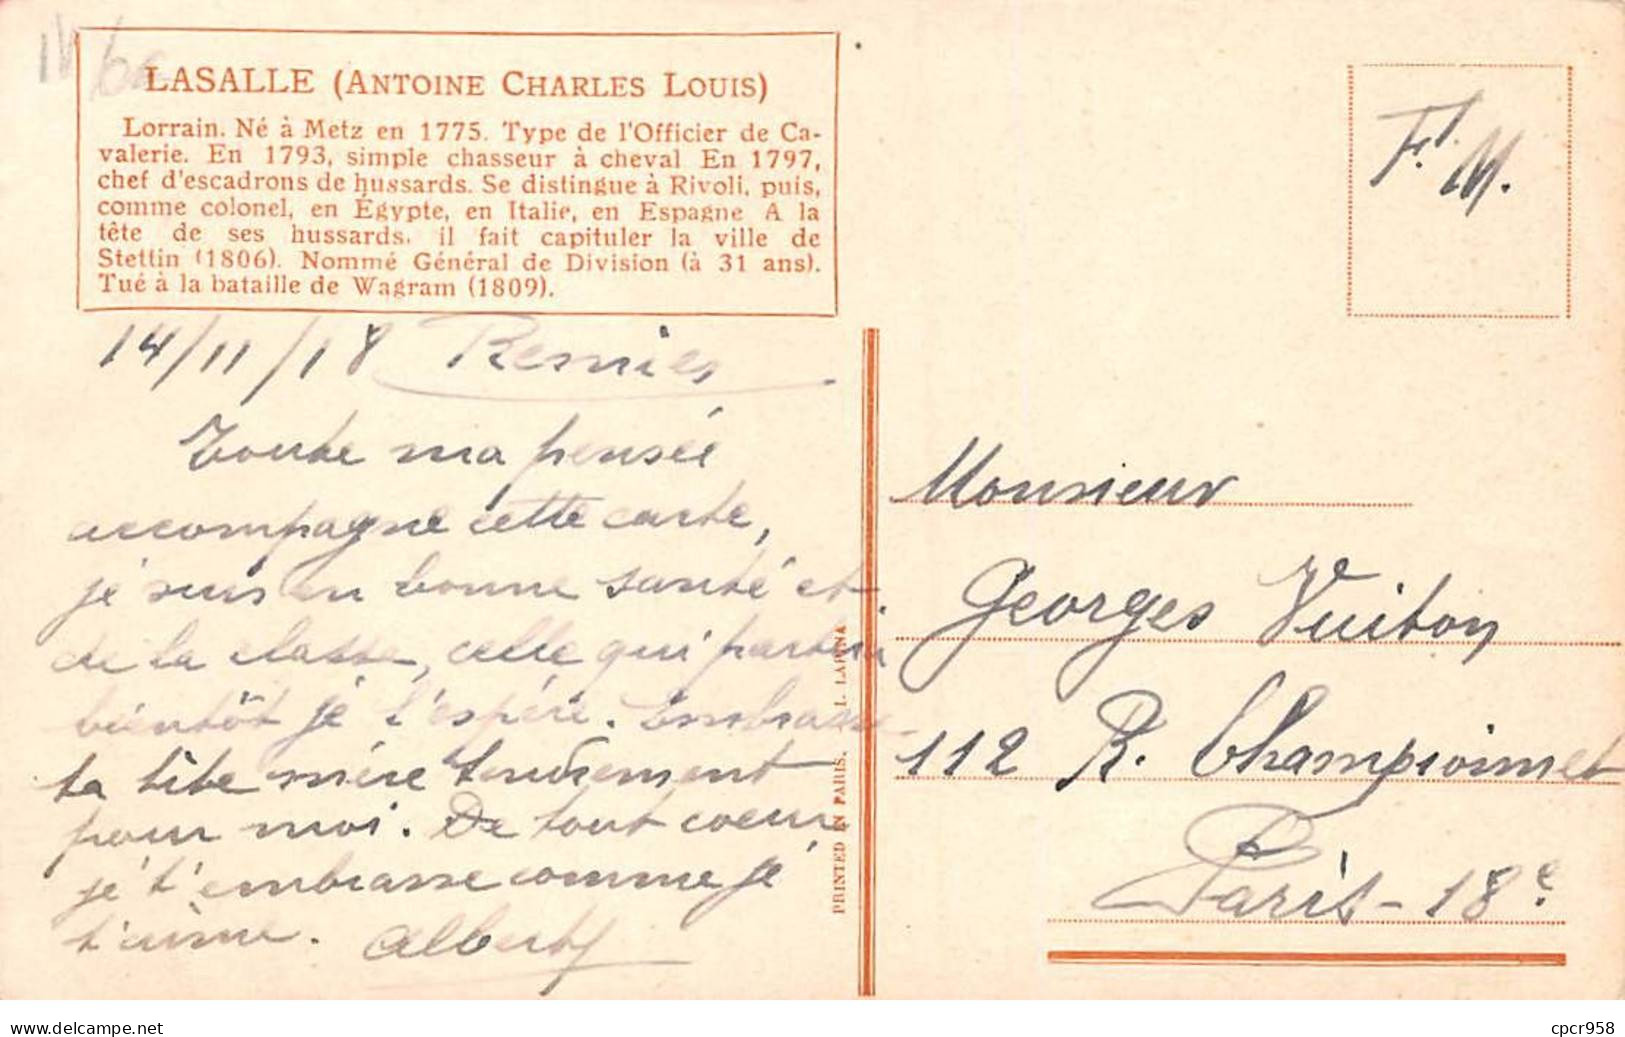 LASALLE (ANTOINE CHARLES LOUIS)
Lorrain. Né à Metz en 1775. Type de l'Officier de Ca-
valerie. En 1793, simple chasseur à cheval En 1797,
chef d'escadrons de hussards. Se distingue à Rivoli, puis,
comme colonel, en Égypte, en Italie, en Espagne A la
tête de ses hussards, il fait capituler la ville de
Stettin (1806). Nommé Général de Division (à 31 ans).
Tué à la bataille de Wagram (1809).
14/11/18
Toute ma pensée
accompagne cette carte,
je suis en bonne santé et
de la classe, celle qui partira
bientôt je l'espère. Embrasse
ta tite mère tendrement
pour moi. De tout coeur
je t'embrasse comme je
t'aime. Albert
PRINTED IN PARIS. I. LAPINA
F. M.
Monsieur
Georges Vuiton
112 R. Championnet
Paris - 18e
www.delcampe.net
cpcr958